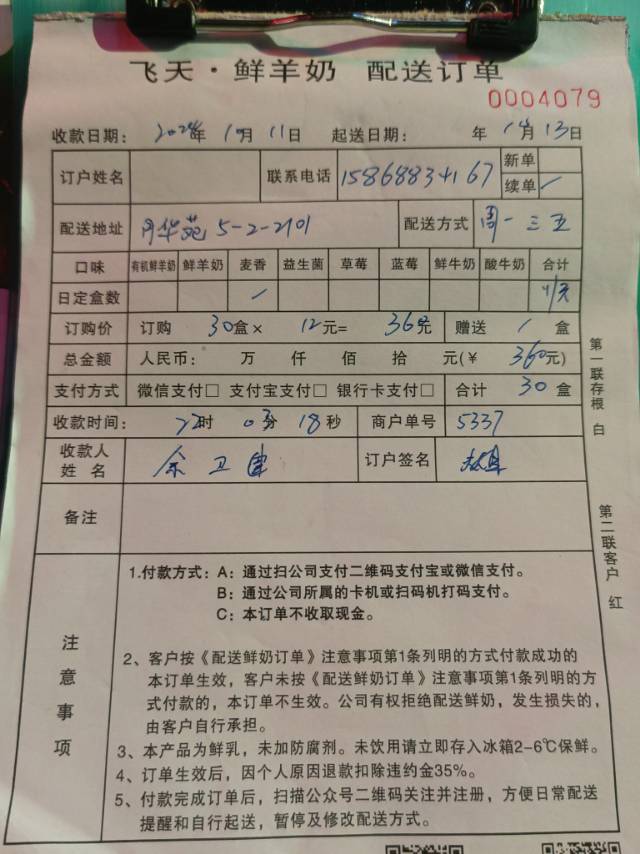 飞天·鲜羊奶 配送订单
0004079
收款日期: 2024年 10月 11日 起送日期: 年 月 13日
订户姓名 联系电话 15868834167 新单
续单 ✓
配送地址 月华苑 5-2-2701 配送方式 周一 三 五
口味 有机鲜羊奶 鲜羊奶 麦香 益生菌 草莓 蓝莓 鲜牛奶 酸牛奶 合计
日定盒数 ✓ 1/天
订购价 订购 30盒× 12元= 360元 赠送 1 盒
总金额 人民币: 万 仟 佰 拾 元(¥ 360元)
支付方式 微信支付□ 支付宝支付□ 银行卡支付□ 合计 30 盒
收款时间: 22时 03分 18秒 商户单号 5337
收款人
姓 名 余卫 订户签名
备注
注意事项
1.付款方式: A: 通过扫公司支付二维码支付宝或微信支付。
B: 通过公司所属的卡机或扫码机打码支付。
C: 本订单不收取现金。
2、客户按《配送鲜奶订单》注意事项第1条列明的方式付款成功的
本订单生效，客户未按《配送鲜奶订单》注意事项第1条列明的方
式付款的，本订单不生效。公司有权拒绝配送鲜奶，发生损失的，
由客户自行承担。
3、本产品为鲜乳，未加防腐剂。未饮用请立即存入冰箱2-6℃保鲜。
4、订单生效后，因个人原因退款扣除违约金35%。
5、付款完成订单后，扫描公众号二维码关注并注册，方便日常配送
提醒和自行起送，暂停及修改配送方式。
第一联存根 白
第二联客户 红